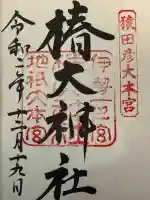 猿田彦大本宮
伊勢
椿大神社
地祇大本宮
令和二年十二月十九日